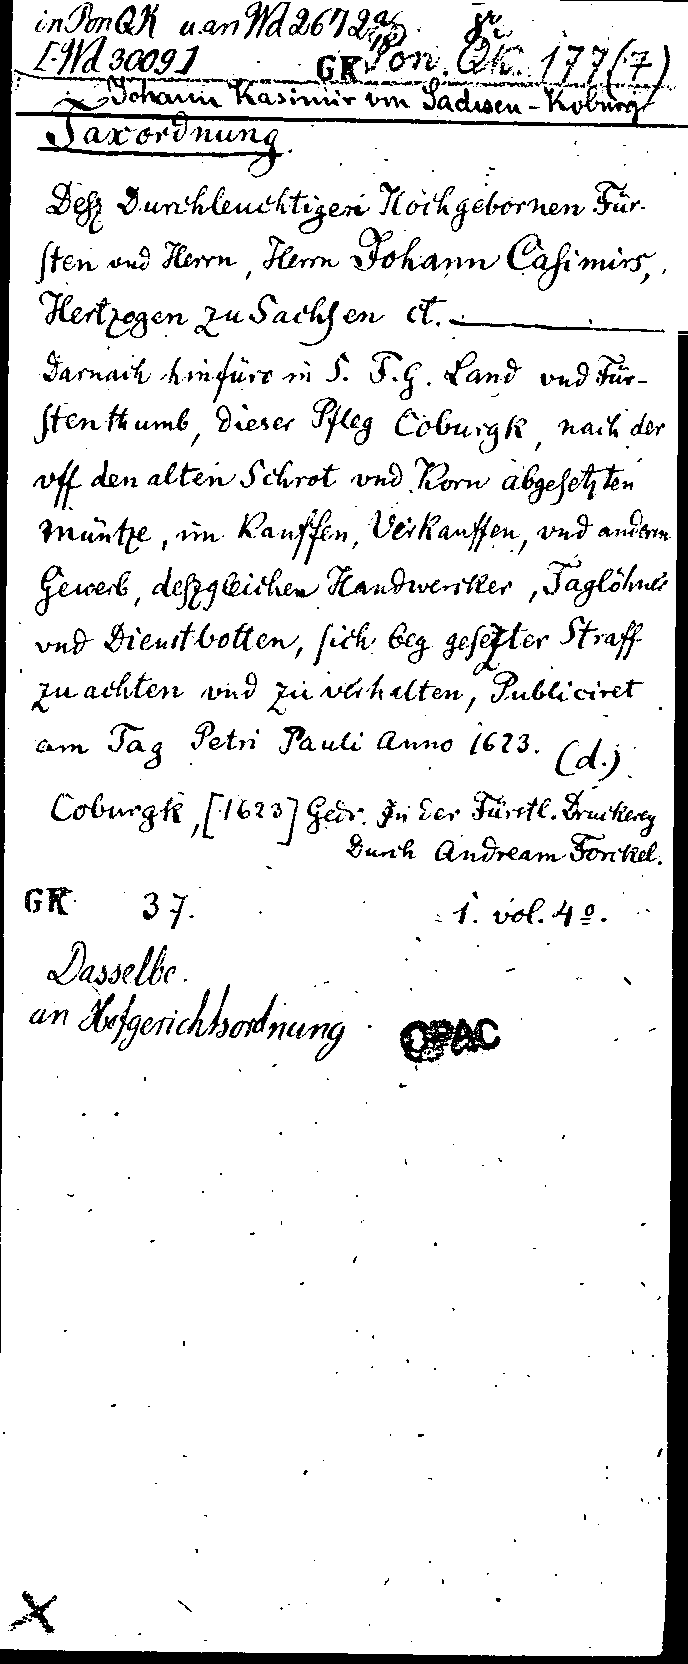 in Pon QK u an Wd 2672
[Wd 3009]
GK Pon. QK. 177(7)
Johann Kasimir von Sachsen-Koburg
Taxordnung.
Desz Durchleuchtigen Hochgebornen Für-
sten vnd Herrn, Herrn Johann Casimirs,
Hertzogen zu Sachsen ct.
Darnach hinfüro in S. F. G. Land vnd Für-
stenthumb, dieser Pfleg Coburgk, nach der
vff den alten Schrot vnd Korn abgesetzten
Müntze, im Kauffen, Verkauffen, vnd anderm
Gewerb, deszgleichen Handwercker, Taglöhner
vnd Dienstbotten, sich bey gesetzter Straff
zu achten vnd zu verhalten, Publiciret
am Tag Petri Pauli Anno 1623. (d.)
Coburgk, [1623] Gedr. In der Fürstl. Druckerey
Durch Andream Forckel.
GK 37. 1. vol. 4o.
Dasselbe.
an Hofgerichtsordnung OPAC
X